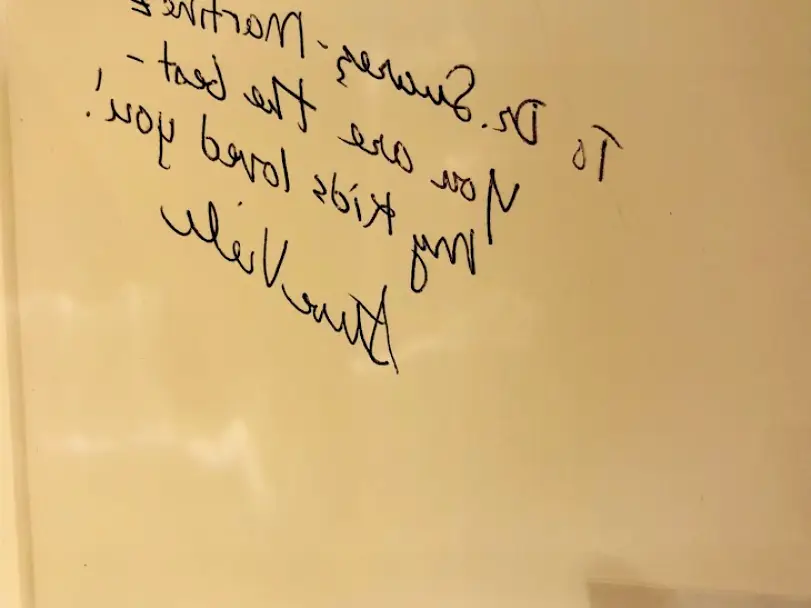 To Dr. Suarez-Martinez
You are the best -
my kids loved you!
Steve Viele